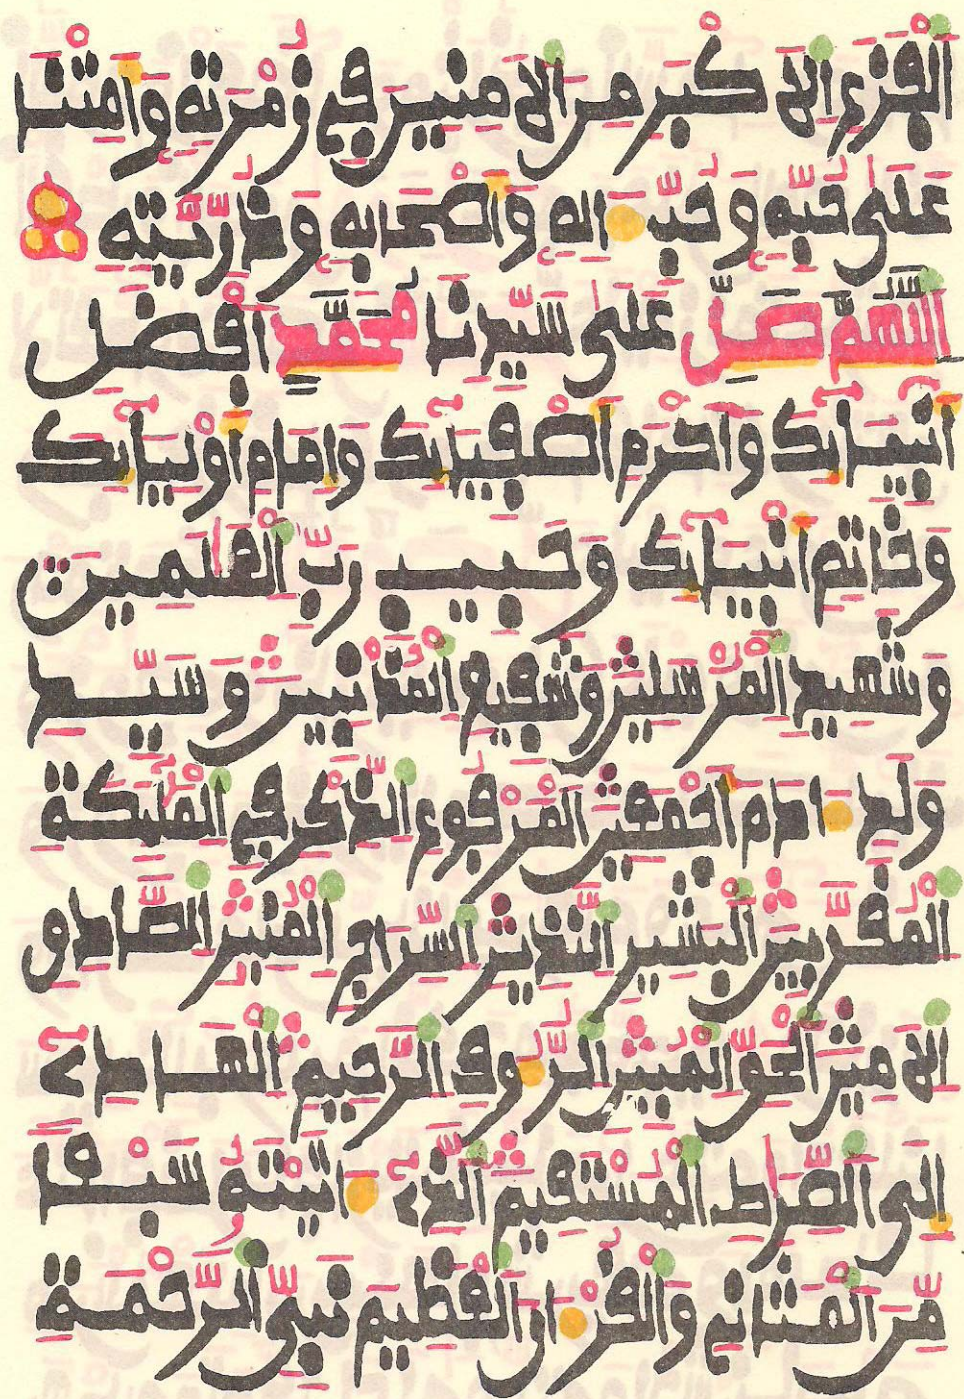 الْفَزَعِ الْأَكْبَرِ مِنَ الْآمِنِينَ فِي زُمْرَتِهِ وَأَمِتْنَا
عَلَىٰ حُبِّهِ وَحُبِّ ءَالِهِ وَأَصْحَابِهِ وَذُرِّيَّتِهِ
اللَّهُمَّ صَلِّ عَلَىٰ سَيِّدِنَا مُحَمَّدٍ أَفْضَلِ
أَنْبِيَآئِكَ وَأَكْرَمِ أَصْفِيَآئِكَ وَإِمَامِ أَوْلِيَآئِكَ
وَخَاتِمِ أَنْبِيَآئِكَ وَحَبِيبِ رَبِّ الْعَٰلَمِينَ
وَشَهِيدِ الْمُرْسَلِينَ وَشَفِيعِ الْمُذْنِبِينَ وَسَيِّدِ
وَلَدِ ءَادَمَ أَجْمَعِينَ الْمَرْفُوعِ الذِّكْرِ فِي الْمَلَٰئِكَةِ
الْمُقَرَّبِينَ الْبَشِيرِ النَّذِيرِ السِّرَاجِ الْمُنِيرِ الصَّادِقِ
الْأَمِينِ الْحَقِّ الْمُبِينِ الرَّءُوفِ الرَّحِيمِ الْهَادِي
إِلَى الصِّرَاطِ الْمُسْتَقِيمِ الَّذِي ءَاتَيْتَهُ سَبْعًا
مِّنَ الْمَثَانِي وَالْقُرْءَانَ الْعَظِيمَ نَبِيِّ الرَّحْمَةِ